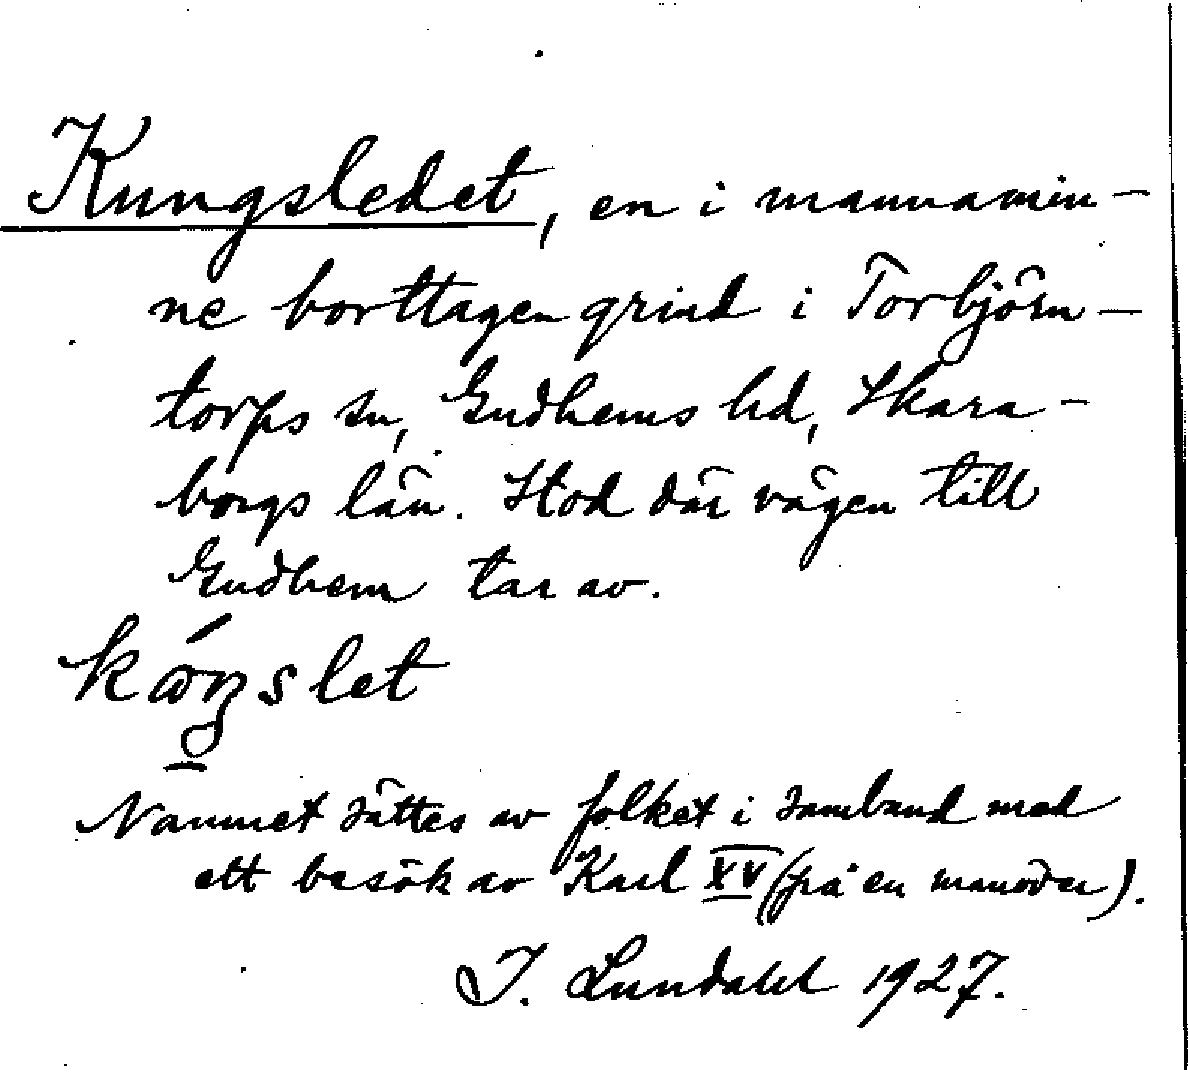 Kungsledet, en i mannamin-
ne borttagen grind i Torbjörn-
torps sn, Gudhems hd, Skara-
borgs län. Stod där vägen till
Gudhem tar av.
Namnet sattes av folket i samband med
ett besök av Karl XV (på en manöver).
J. Lundahl 1927.